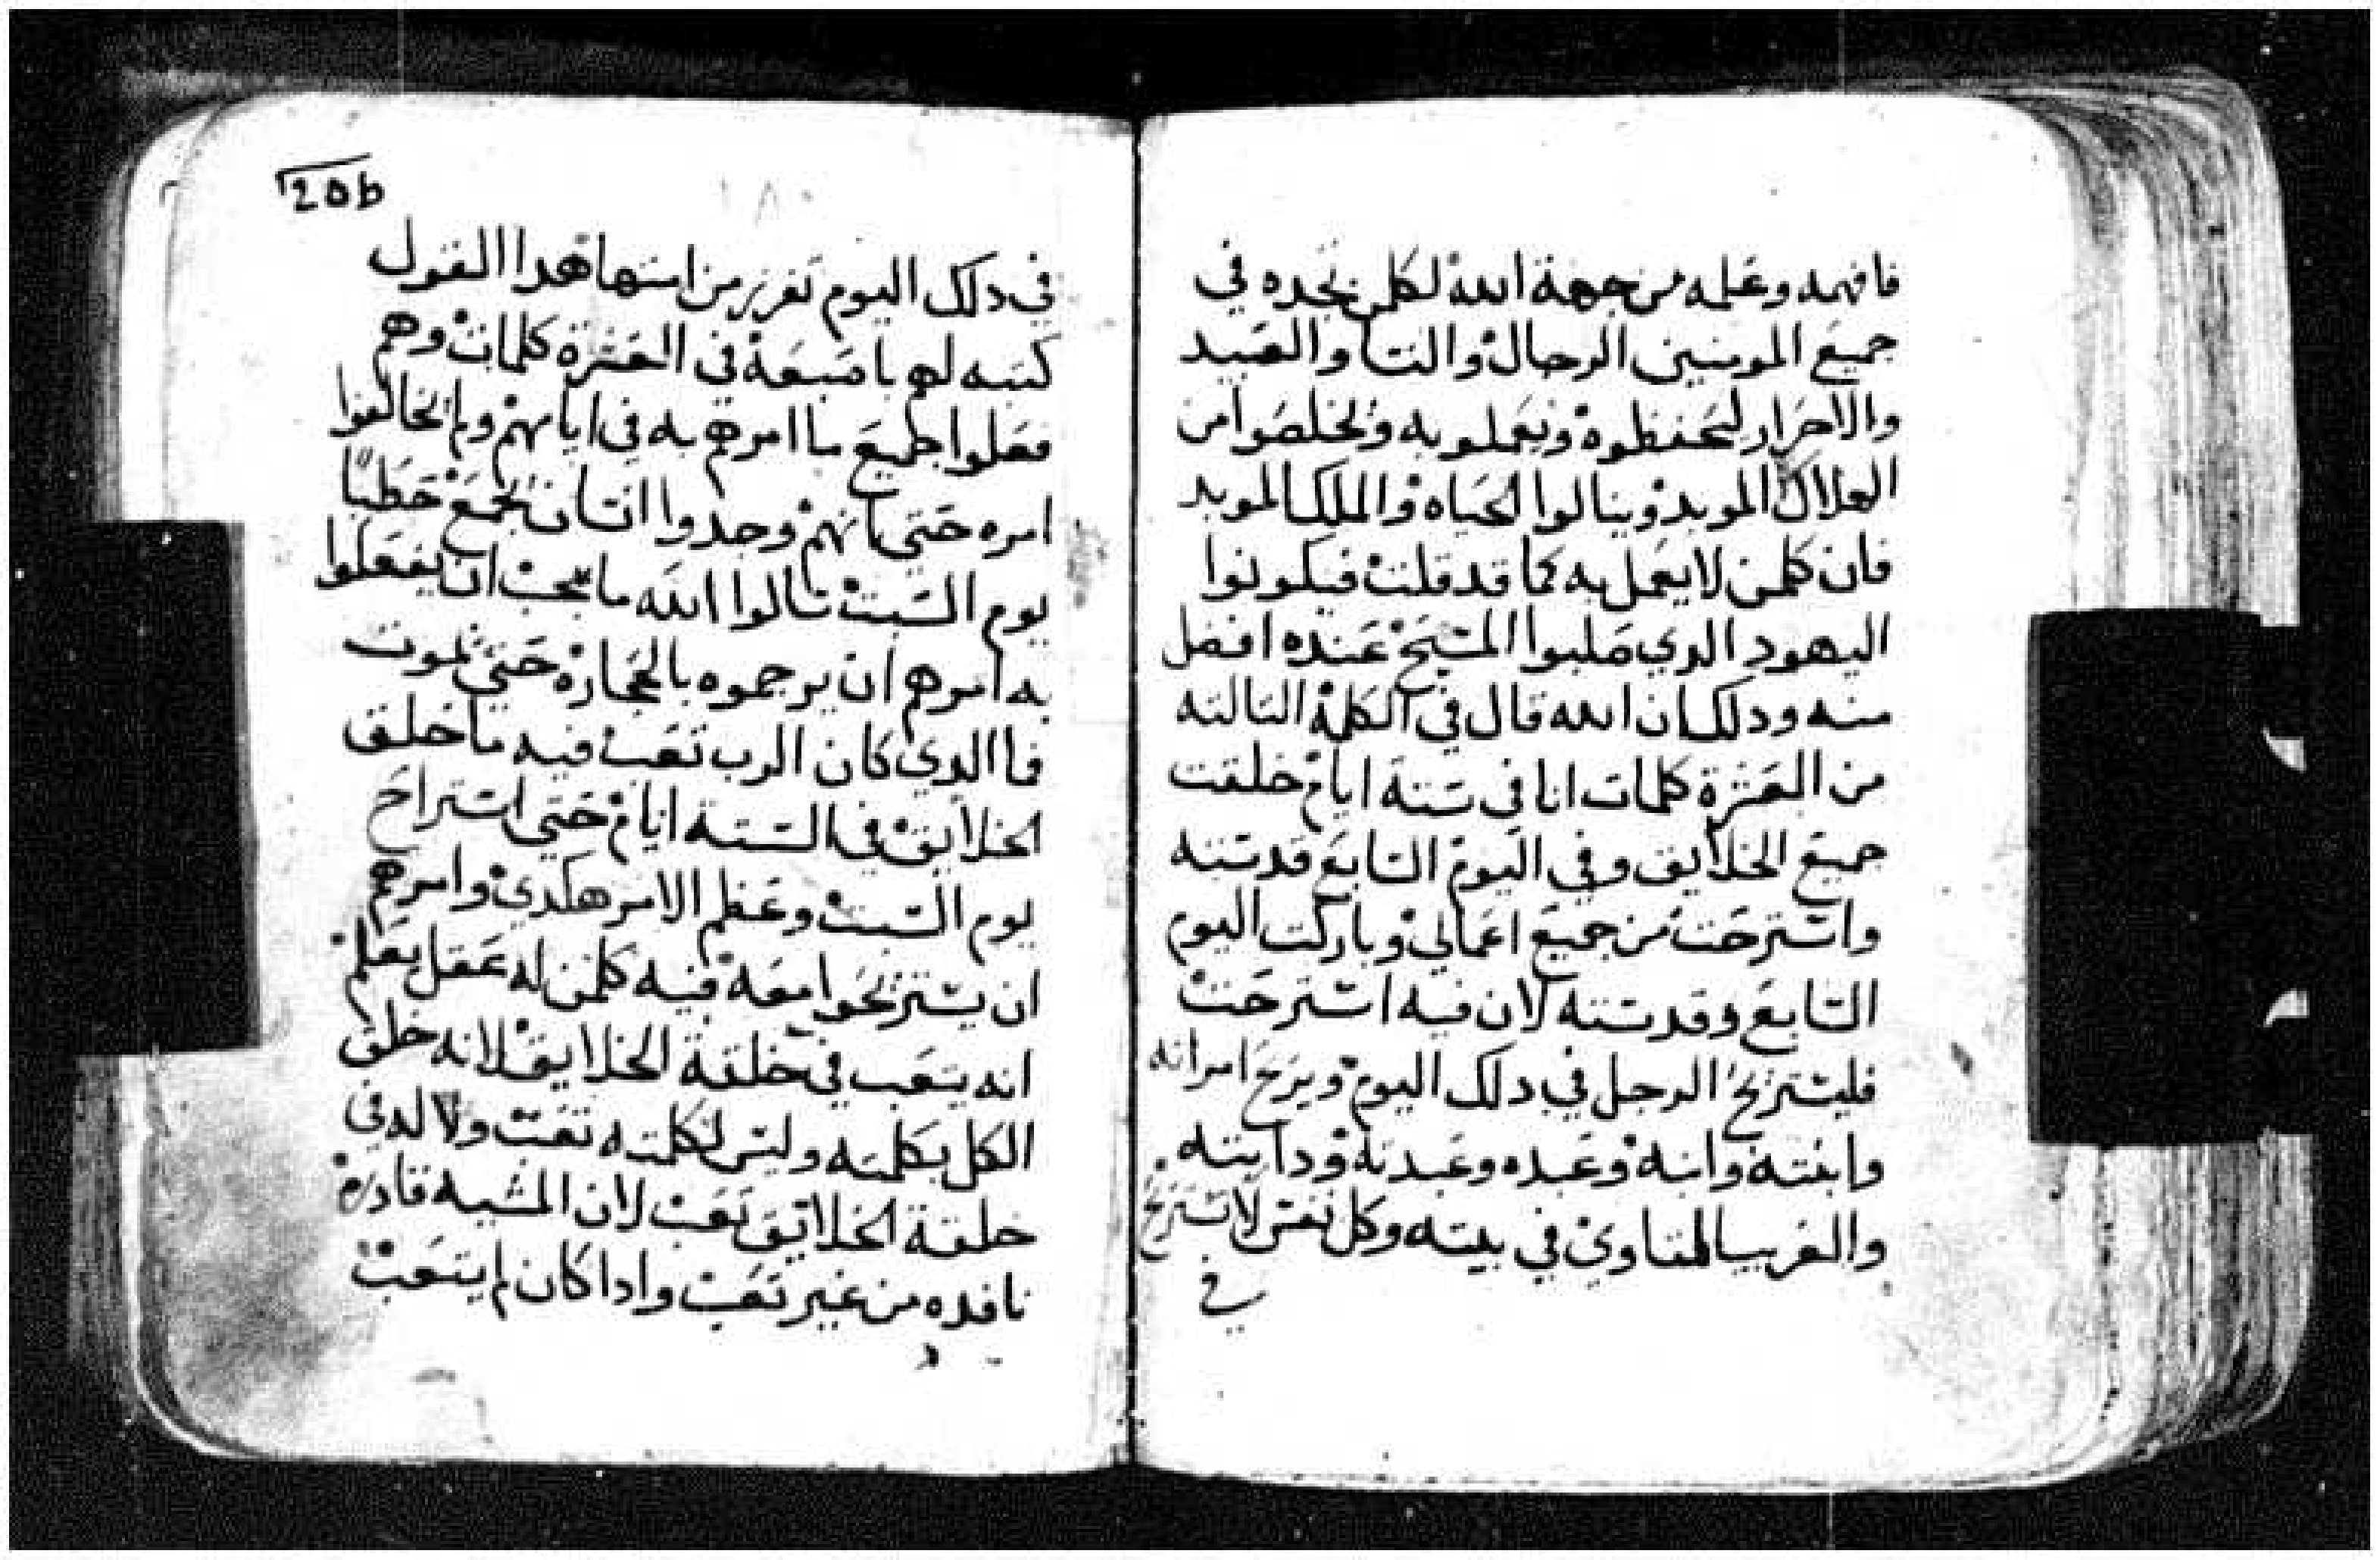 فافهمه وعلمه من جهة الله لكلمن نجده في
جميع المومنين الرجال والنسا والعبيد
والاحرار ليحفظوه ويعملوبه ويخلصوا من
الهلاك الموبد وينالوا الحياه والملك الموبد
فان كلمن لا يعمل به كما قد قلت فيكونوا
اليهود الدي صلبوا المسيح عنده افضل
منه ودلك ان الله قال في الكلمة التالته
من العشرة كلمات انا في ستة ايام خلقت
جميع الخلايق وفي اليوم السابع قدسته
واسترحت من جميع اعمالي وباركت اليوم
السابع وقدسته لان فيه استرحت
فليستريح الرجل في دلك اليوم ويريح امراته
وابنته وابنه وعبده وعبدته ودابته
والغريب المتاوي في بيته وكل نفس لا تستريح
في
20b
١٨٠
في دلك اليوم تغرز من استها هدا القول
كتبه لهم باصبعه في العشرة كلمات وهم
فعلوا جميع ما امرهم به في ايامهم ولم يخالفوا
امره حتي انهم وجدوا انسان يجمع حطبًا
يوم السبت سالوا الله ما يجب ان يفعلوا
به امرهم ان يرجموه بالحجارة حتي يموت
فما الدي كان الرب تعب فيه ما خلق
الخلايق في الستة ايام حتي استراح
يوم السبت وعظم الامر هكدي وامرهم
ان يستريحوا معه فيه كلمن له عقل يعلم
انه يتعب في خلقة الخلايق لانه خلق
الكل بكلمته وليس لكلمته تعب ولا له في
خلقة الخلايق تعب لان المشيه قادره
نافده من غير تعب وادا كان لم يتعب